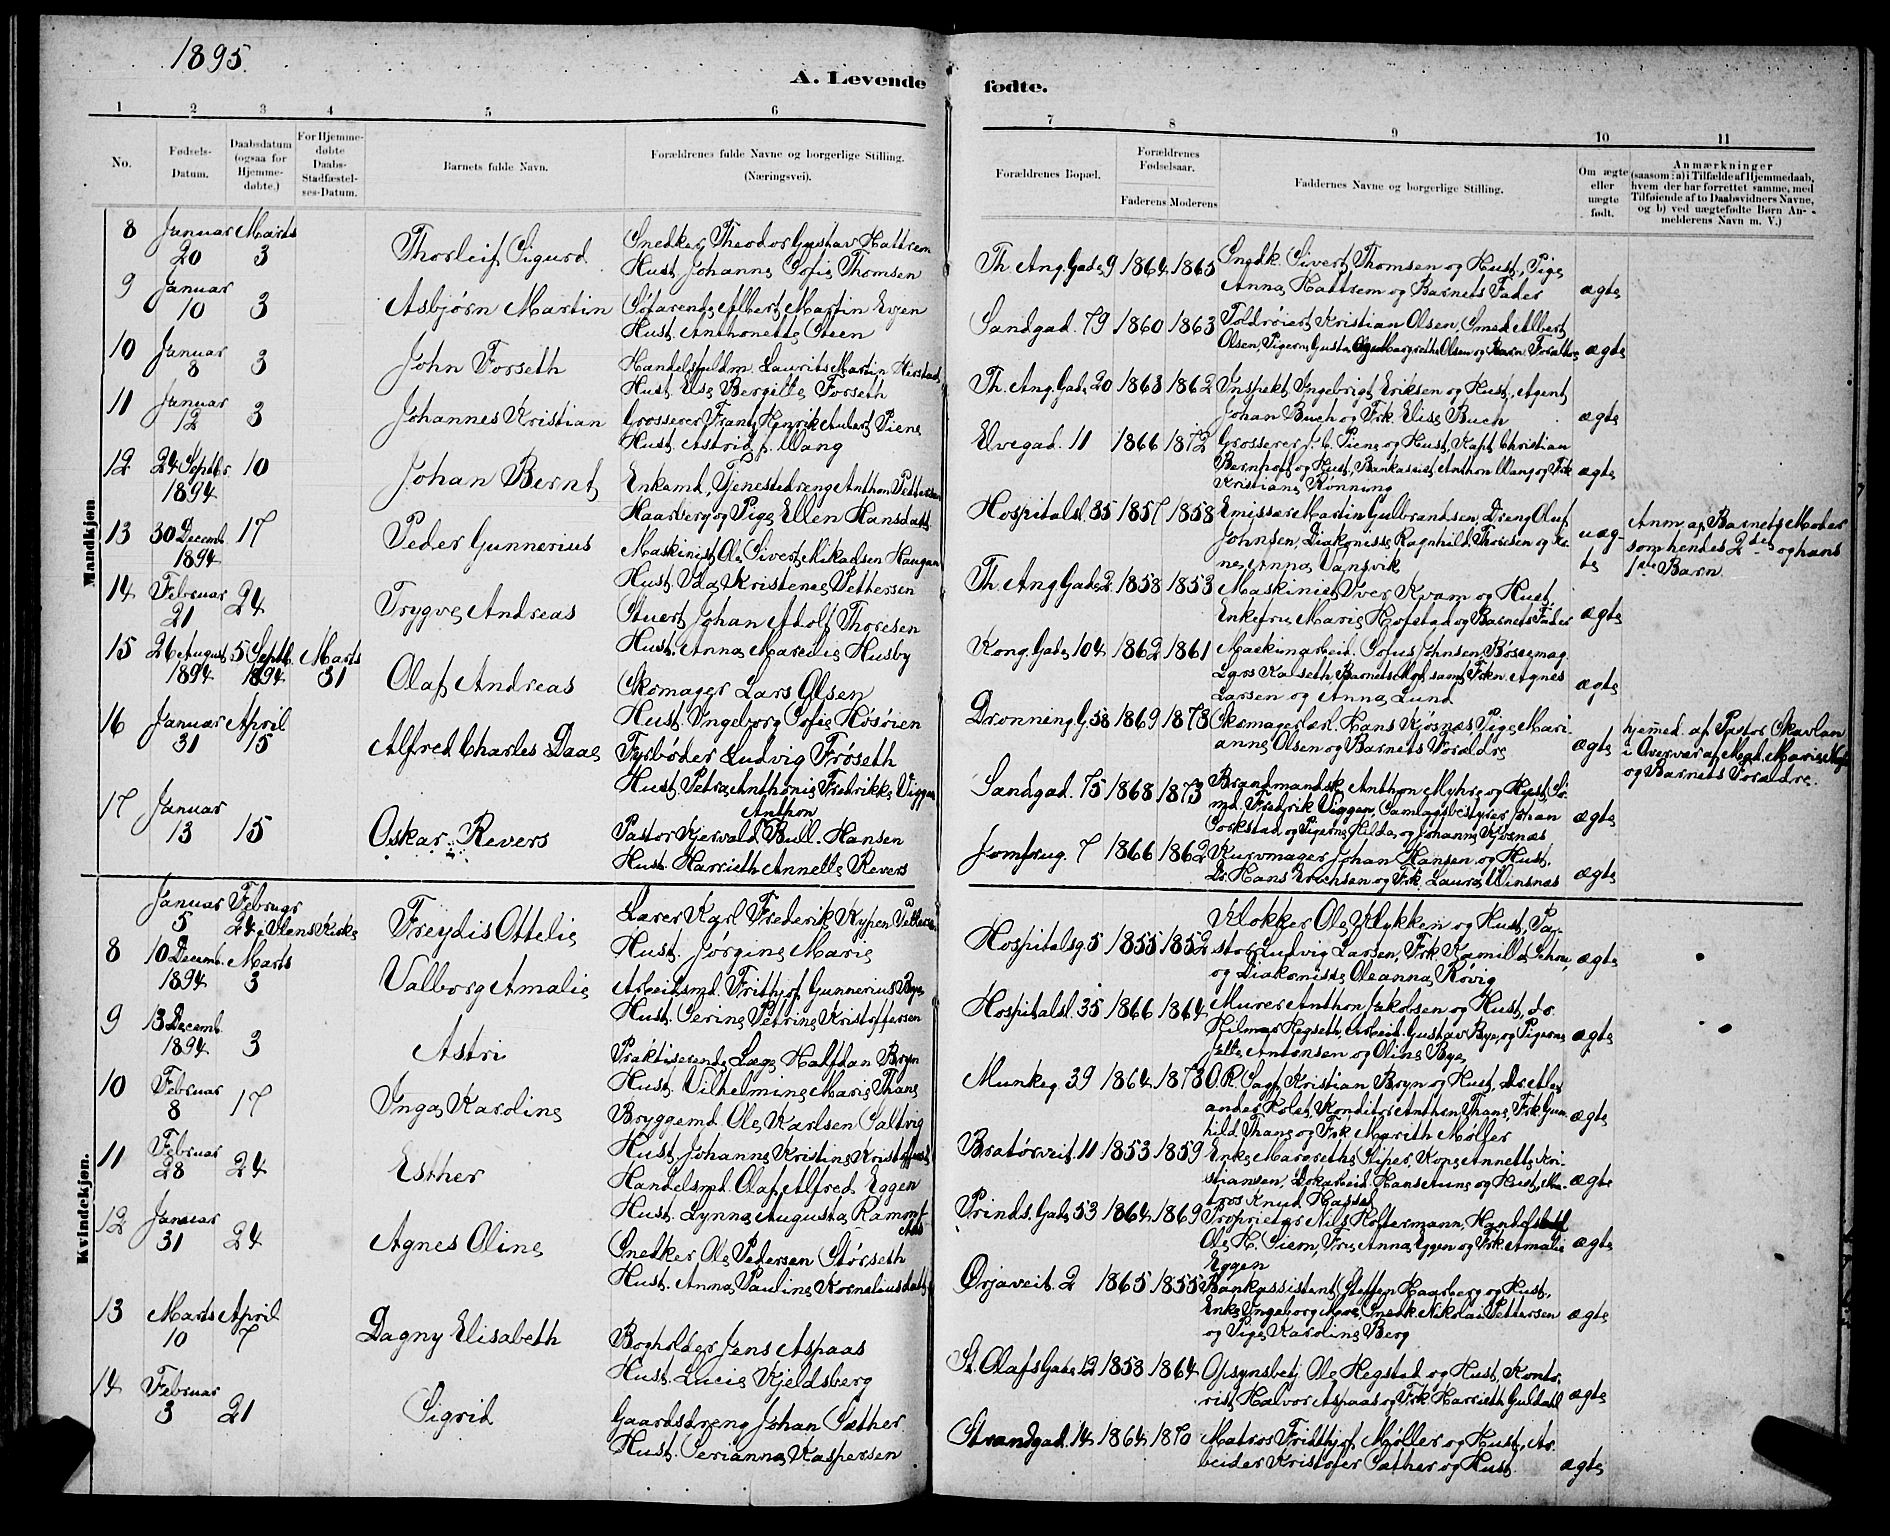 1895.
A. Levende
1 2 3 4 5 6
No.
Fødsels-
Datum.
Daabsdatum
(ogsaa for
Hjemme-
døbte.)
For Hjemme-
døbte
Daabs-
Stadfæstel-
ses-Datum.
Barnets fulde Navn.
Forældrenes fulde Navne og borgerlige Stilling.
(Næringsvei).
Mandkjøn
8 Januar Marts
20 3 Thorleif Sigurd
Snedker Theodor Gustav Hattrem
Hust. Johanne Sofie Thomsen
9 Januar
10 3 Asbjørn Martin
Søfarende Albert Martin Evjen
Hust. Anthonette Steen
10 Januar
8 3 John Forseth
Handelsfuldm. Laurits Martin
Hust. Else Bergitte Forseth
11 Januar
12 3 Johannes Kristian
Grosserer Frantz Henrik Aubert Piene
Hust. Astrid f. Wang
12 24 Septbr. 10
1894 Johan Bernt
Enkemd., Tjenestedreng Anthon Pettersen
Haarberg og Pige Ellen Hansdatt.
13 30 Decemb. 17
1894 Peder Gunnerius
Maskinist Ole Sivert Mikaelsen Haugan
Hust. Ida Kristene Pettersen
14 Februar
21 24 Trygve Andreas
Stuert Johan Adolf Thoresen
Hust. Anna Marelie Husby
15 26 August 5 Septb. Marts
1894 1894 31 Olaf Andreas
Skomager Lars Olsen
Hust. Ingeborg Sofie
16 Januar April
31 15 Alfred Charles Daae
Fyrbøder Ludvig Frøseth
Hust. Petra Anthonie Fredrikke Viggen
17 Januar
13 15 Oskar Revers
Anthon
Pastor Kjervald Bull-Hansen
Hust. Harrieth Annette Revers
Kvindekjøn.
Januar Februar
5 24, Ilens Kirke Freydis Ottelie
Lærer Karl Frederik Pettersen
Hust. Jørgine Marie
8 10 Decemb. Marts
1894 3 Valborg Amalie
Arbeidsmd. Frithjof Gunnerius Bye
Hust. Serine Petrine Kristoffersen
9 13 Decemb.
1894 3 Astri
Praktiserende Læge Halfdan Bryn
Hust. Vilhelmine Marie Thane
10 Februar
8 17 Inga Karoline
Bryggemd. Ole Karlsen Saltvig
Hust. Johanne Kristine
11 Februar
28 24 Esther
Handelsmd. Olaf Alfred Eggen
Hust. Lynna Augusta
12 Januar
31 24 Agnes Oline
Snedker Ole Pedersen Størseth
Hust. Anna Pauline Korneliusdatt.
13 Marts April
10 7 Dagny Elisabeth
Bogholder Jens Aspaas
Hust. Lucie Kjeldsberg
14 Februar
3 21 Sigrid
Gaardsdreng Johan Sæther
Hust. Serianna Kaspersen
fødte.
7 8 9 10 11
Forældrenes Bopæl.
Forældrenes
Fødselsaar.
Faderens Moderens
Faddernes Navne og borgerlige Stilling.
Om ægte
eller
uægte
født.
Anmærkninger
(saasom: a) i Tilfælde af Hjemmedaab,
hvem der har forrettet samme, med
Tilføiende af to Daabsvidners Navne,
og b) ved uægtefødte Børn An-
melderens Navn m. V.)
Th. Ang. Gade 9 1864 1865
Snedk. Sivert Thomsen og Hust., Pige
Anna Hattrem og Barnets Fader ægte
Sandgad. 79 1860 1863
Toldroiert Kristian Olsen, Smed Albert
Olsen, Pigerne Gusta Margrethe Olsen og Barn. Forældre ægte
Th. Ang. Gade 20 1863 1862
Inspekt. Ingebrigt Eriksen og Hust., Agent
Johan Buch og Frk. Elise Buch ægte
Elvegad. 11 1866 1872
Grosserer Piene og Hust., Kapt. Christian
Bernhoft og Hust., Bankassist. Anthon Wang og Frk.
Kristiane Rønning ægte
Hospitalsl. 35 1857 1858
Emissær Martin Gulbrandsen, Dreng Oluf
Johnsen, Diakonisse Ragnhild Thoresen og Ko-
ne Anna Vangsvik uæg-
te
Anm. af Barnets Moder
som hendes 2det og hans
1ste Barn
Th. Ang. Gade 2 1858 1853
Maskinist Iver Kvam og Hust.,
Enkefru Marie Hofstad og Barnets Fader ægte
Kong. Gade 104 1862 1861
Maskinarbeid. Sofus Johnsen, Bøssemag.
Lars Kalseth, Barnets Mor samt Frkn. Agnes
Larsen og Anna Lund ægte
Dronning. G. 58 1869 1873
Skomagerlærl. Hans Kjøsnæs, Pige Mari-
anne Olsen og Barnets Forældre ægte
hjemmed. af Pastor Skavlan
i Overvær af Mad. Marie
og Barnets Forældre.
Sandgad. 75 1868 1873
Brandmandsk. Anthon Myhre og Hust., Sø-
md. Fredrik Viggen, Samlagsbestyrer Johan
Sorkstad og Pigerne Hilda og Johanna Kvenæs ægte
Jomfrug. 7 1866 1862
Kurvmager Johan Hansen og Hust.
Dr. Hans Evensen og Frk. Laura Winsnæs ægte
Hospitalsg. 5 1855 1852
Klokker Ole Klykken og Hust., Pa-
stor Ludvig Larsen, Frk. Kamilla Schou,
og Diakonisse Oleanna Røvig ægte
Hospitalsl. 35 1866 1864
Murer Anthon Jakobsen og Hust., do.
Hilmar Hegseth, Arbeid. Gustav Bye og Pigerne
Jette Antonsen og Oline Bye ægte
Munkeg. 39 1864 1873
O.R. Sagf. Kristian Bryn og Hust., Dr. Alex-
ander Holst, Konditor Anthon Thane, Frk. Gun-
hild Thane og Frk. Marith Møller ægte
Bratørveit. 11 1853 1859
Enke Margrethe Kone Annette Kri-
stiansen, Dokarbeid. Hans Aune og Hust., Ma-
tros Knud Hassel ægte
Prinds. Gade 53 1864 1869
Proprietær Nils Holtermann, Handelsbet.
Ole H. Siem, Fru Anna Eggen og Frk. Amalie
Eggen ægte
Ørjaveit. 2 1865 1855
Bankassistent Steffen Haarberg og Hust.,
Enke Ingeborg Snedk. Nikolai Pettersen
og Pige Karoline Berg ægte
St. Olafs Gade 12 1858 1864
Opsynsbetj. Ole Hegstad og Hust., Konto-
rist Halvor Aspaas og Frk. Harrieth Guldahl ægte
Strandgad. 14 1864 1870
Matros Fridthjof Møller og Hust., Ar-
beider Kristofer Sæther og Hust. ægte